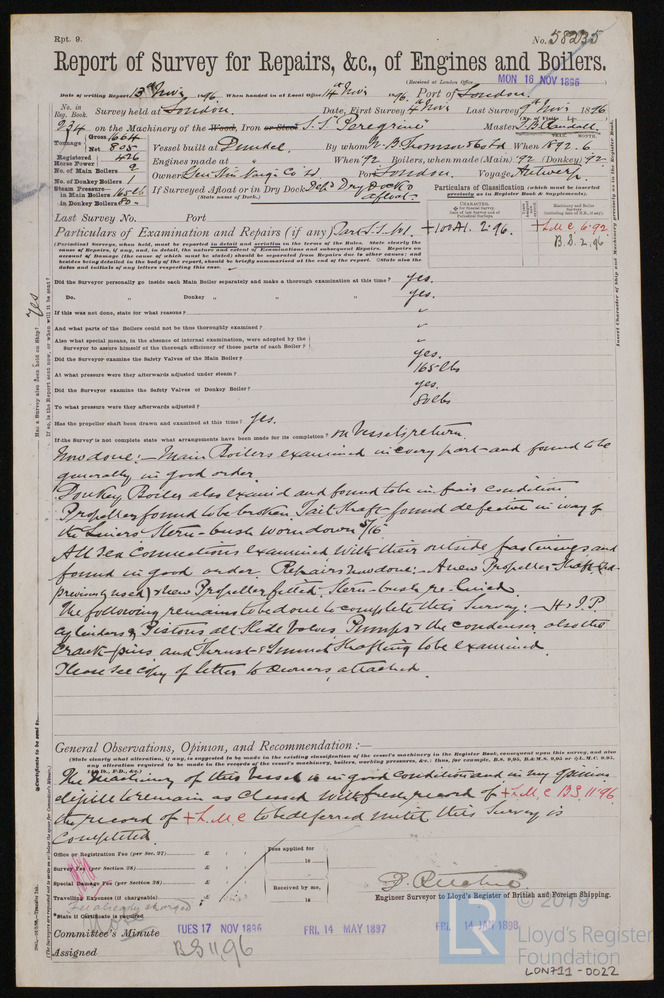 Rpt. 9.
No. 58235
Report of Survey for Repairs, &c., of Engines and Boilers.
(Received at London Office MON 16 NOV 1896
Date of writing Report 13th Nov 1896. When handed in at Local Office 14th Nov 1896. Port of London.
No. in Reg. Book. Survey held at London. Date, First Survey 4 Nov Last Survey 9th Nov 1896
(No. of Visits 4)
234 on the Machinery of the Wood, Iron or Steel S.S. "Peregrine" Master
Tonnage Gross 1664
Net 805
Vessel built at Dundee By whom W. B. Thompson & Co Ld When 1892. 6
Registered Horse Power 426
Engines made at " By whom " When 92 Boilers, when made (Main) 92 (Donkey) 92
No. of Main Boilers 2
No. of Donkey Boilers 1
Owners Genl Stm Navgn Co Ld Port London. Voyage Antwerp.
Steam Pressure in Main Boilers 165 lb
in Donkey Boiler 80
If Surveyed Afloat or in Dry Dock Dry Dock & afloat.
(State name of Dock.)
Particulars of Classification (which must be inserted precisely as in Register Book & Supplements).
Last Survey No. Port
+100A1. 2.96. +L.M.C. 6.92
B.S. 2.96
Particulars of Examination and Repairs (if any)
(Periodical Surveys, when held, must be reported in detail and seriatim in the terms of the Rules. State clearly the cause of Repairs, if any, and, in detail, the nature and extent of Examinations and subsequent Repairs. Repairs on account of Damage (the cause of which must be stated) should be separated from Repairs due to other causes; and besides being detailed in the body of the report, should be briefly summarised at the end of the report. State also the dates and initials of any letters respecting this case.
Did the Surveyor personally go inside each Main Boiler separately and make a thorough examination at this time? yes.
Do. " Donkey " " " yes.
If this was not done, state for what reasons? "
And what parts of the Boilers could not be thus thoroughly examined? "
Also what special means, in the absence of internal examination, were adopted by the Surveyor to assure himself of the thorough efficiency of those parts of each Boiler? "
Did the Surveyor examine the Safety Valves of the Main Boiler? yes.
At what pressure were they afterwards adjusted under steam? 165 lbs
Did the Surveyor examine the Safety Valves of Donkey Boiler? yes
To what pressure were they afterwards adjusted? 80 lbs
Has the propeller shaft been drawn and examined at this time? yes.
If the Survey is not complete state what arrangements have been made for its completion? on Vessel's return.
Now done:- Main Boilers examined in every part and found to be
generally in good order.
Donkey Boiler also examd and found to be in fair condition
Propeller found to be broken. Tail Shaft found defective in way of
the Liners. Stern-bush worn down 5/16
All Sea Connections examined with their outside fastenings and
found in good order. Repairs now done:- A new Propeller Shaft (not
previously used) & new Propeller fitted, Stern-bush re-lined.
The following remains to be done to complete this Survey:- H & I. P.
cylinders & Pistons all Slide Valves, Pumps & the condenser also the
Crank-pins and Thrust & Tunnel Shafting to be examined.
Please see copy of letter to Owners, attached.
General Observations, Opinion, and Recommendation:—
(State clearly what alteration, if any, is suggested to be made in the existing classification of the vessel's machinery in the Register Book, consequent upon this survey, and also any alteration required to be made in the records of the vessel's machinery, boilers, working pressures, &c.; thus, for example, B.S. 9,95, B.&M.S. 9,95, or +L.M.C. 9,95,
The Machinery of this Vessel is in good condition and in my opinion
eligible to remain as Classed with fresh record of +L.M.C. BS. 11.96
the record of +L.M.C to be deferred until this Survey is
Completed.
Office or Registration Fee (per Sec. 27) £ : : Fees applied for
Survey Fee (per Section 28) £ : : 18
Special Damage Fee (per Section 28) £ : : Received by me,
Travelling Expenses (if chargeable) £ : : 18
Fee already charged
*State if Certificate is required
P. Ritchie
Engineer Surveyor to Lloyd's Register of British and Foreign Shipping.
Committee's Minute TUES 17 NOV 1896 FRI. 14 MAY 1897 FRI. 14 JAN 1898
Assigned BS 11,96
© 2019
LR
Lloyd's Register
Foundation
LON711-0022